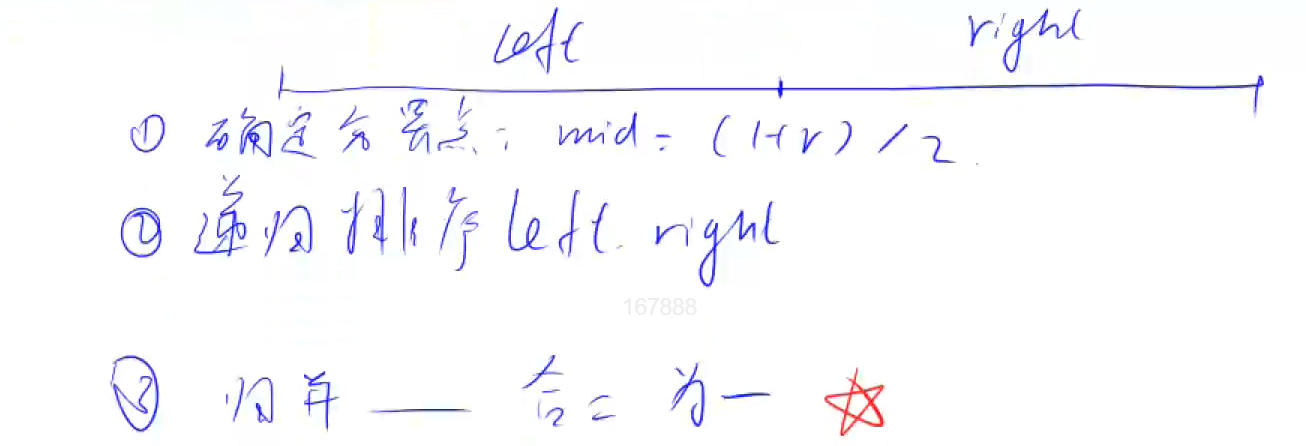 left right
① 确定分界点: mid = (l+r)/2.
② 递归排序 left. right
167888
③ 归并 —— 合二为一